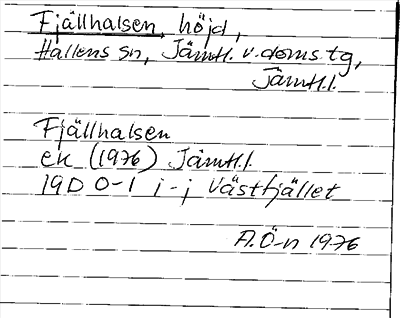 Fjällhalsen, höjd,
Hallens sn, Jämtl. v. doms tg,
Jämtl.l.
Fjällhalsen
ek (1976) Jämtl.l.
19D 0-1 i-j Västfjället
A.Ö-n 1976